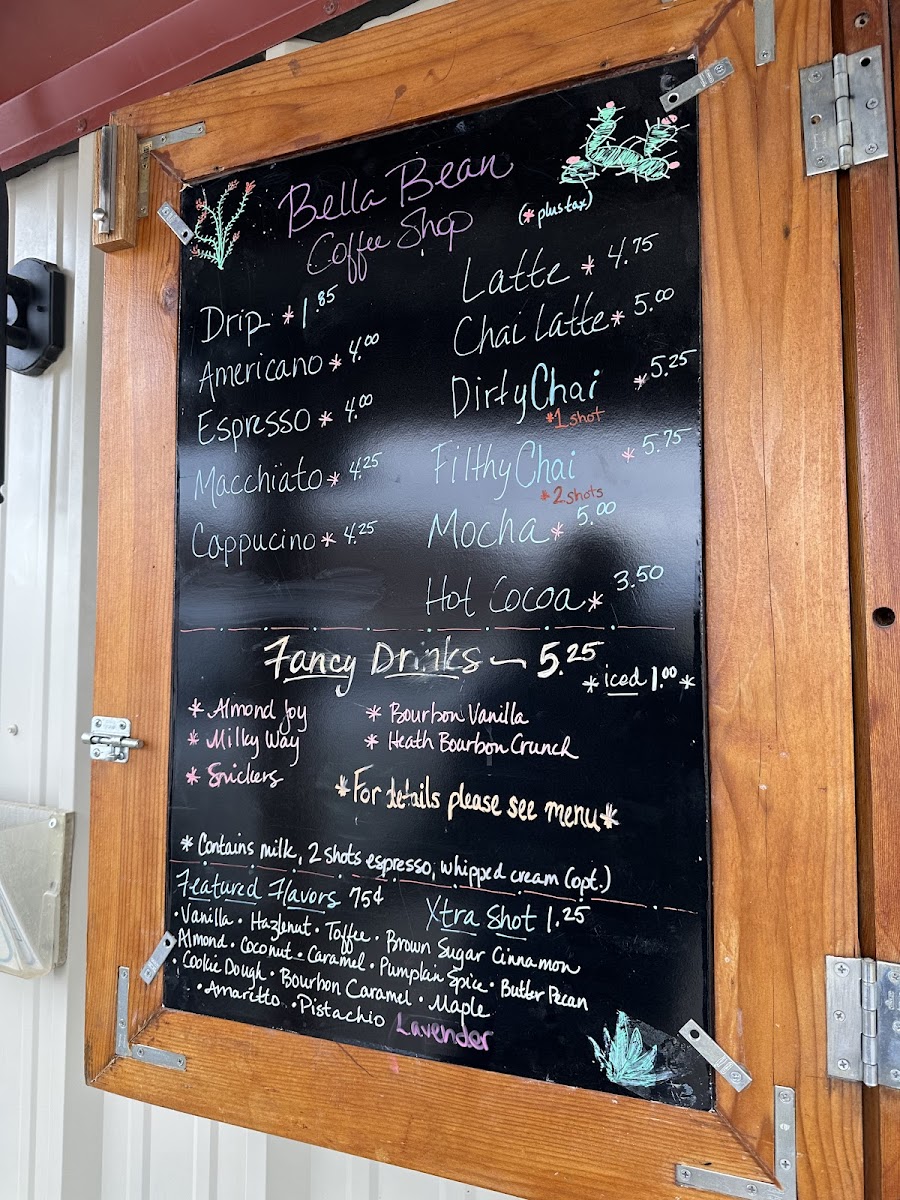 Bella Bean
Coffee Shop
(* plus tax)
Drip * 1.85
Americano * 4.00
Espresso * 4.00
Macchiato * 4.25
Cappucino * 4.25
Latte * 4.75
Chai Latte * 5.00
Dirty Chai * 5.25
*1 shot
Filthy Chai * 5.75
*2 shots
Mocha * 5.00
Hot Cocoa * 3.50
Fancy Drinks — 5.25
* iced 1.00 *
* Almond Joy
* Milky Way
* Snickers
* Bourbon Vanilla
* Heath Bourbon Crunch
*For details please see menu*
* Contains milk, 2 shots espresso, whipped cream (opt.)
Featured Flavors 75¢
Xtra Shot 1.25
• Vanilla • Hazlenut • Toffee • Brown Sugar Cinnamon
• Almond • Coconut • Caramel • Pumpkin Spice • Butter Pecan
• Cookie Dough • Bourbon Caramel • Maple
• Amaretto • Pistachio Lavender